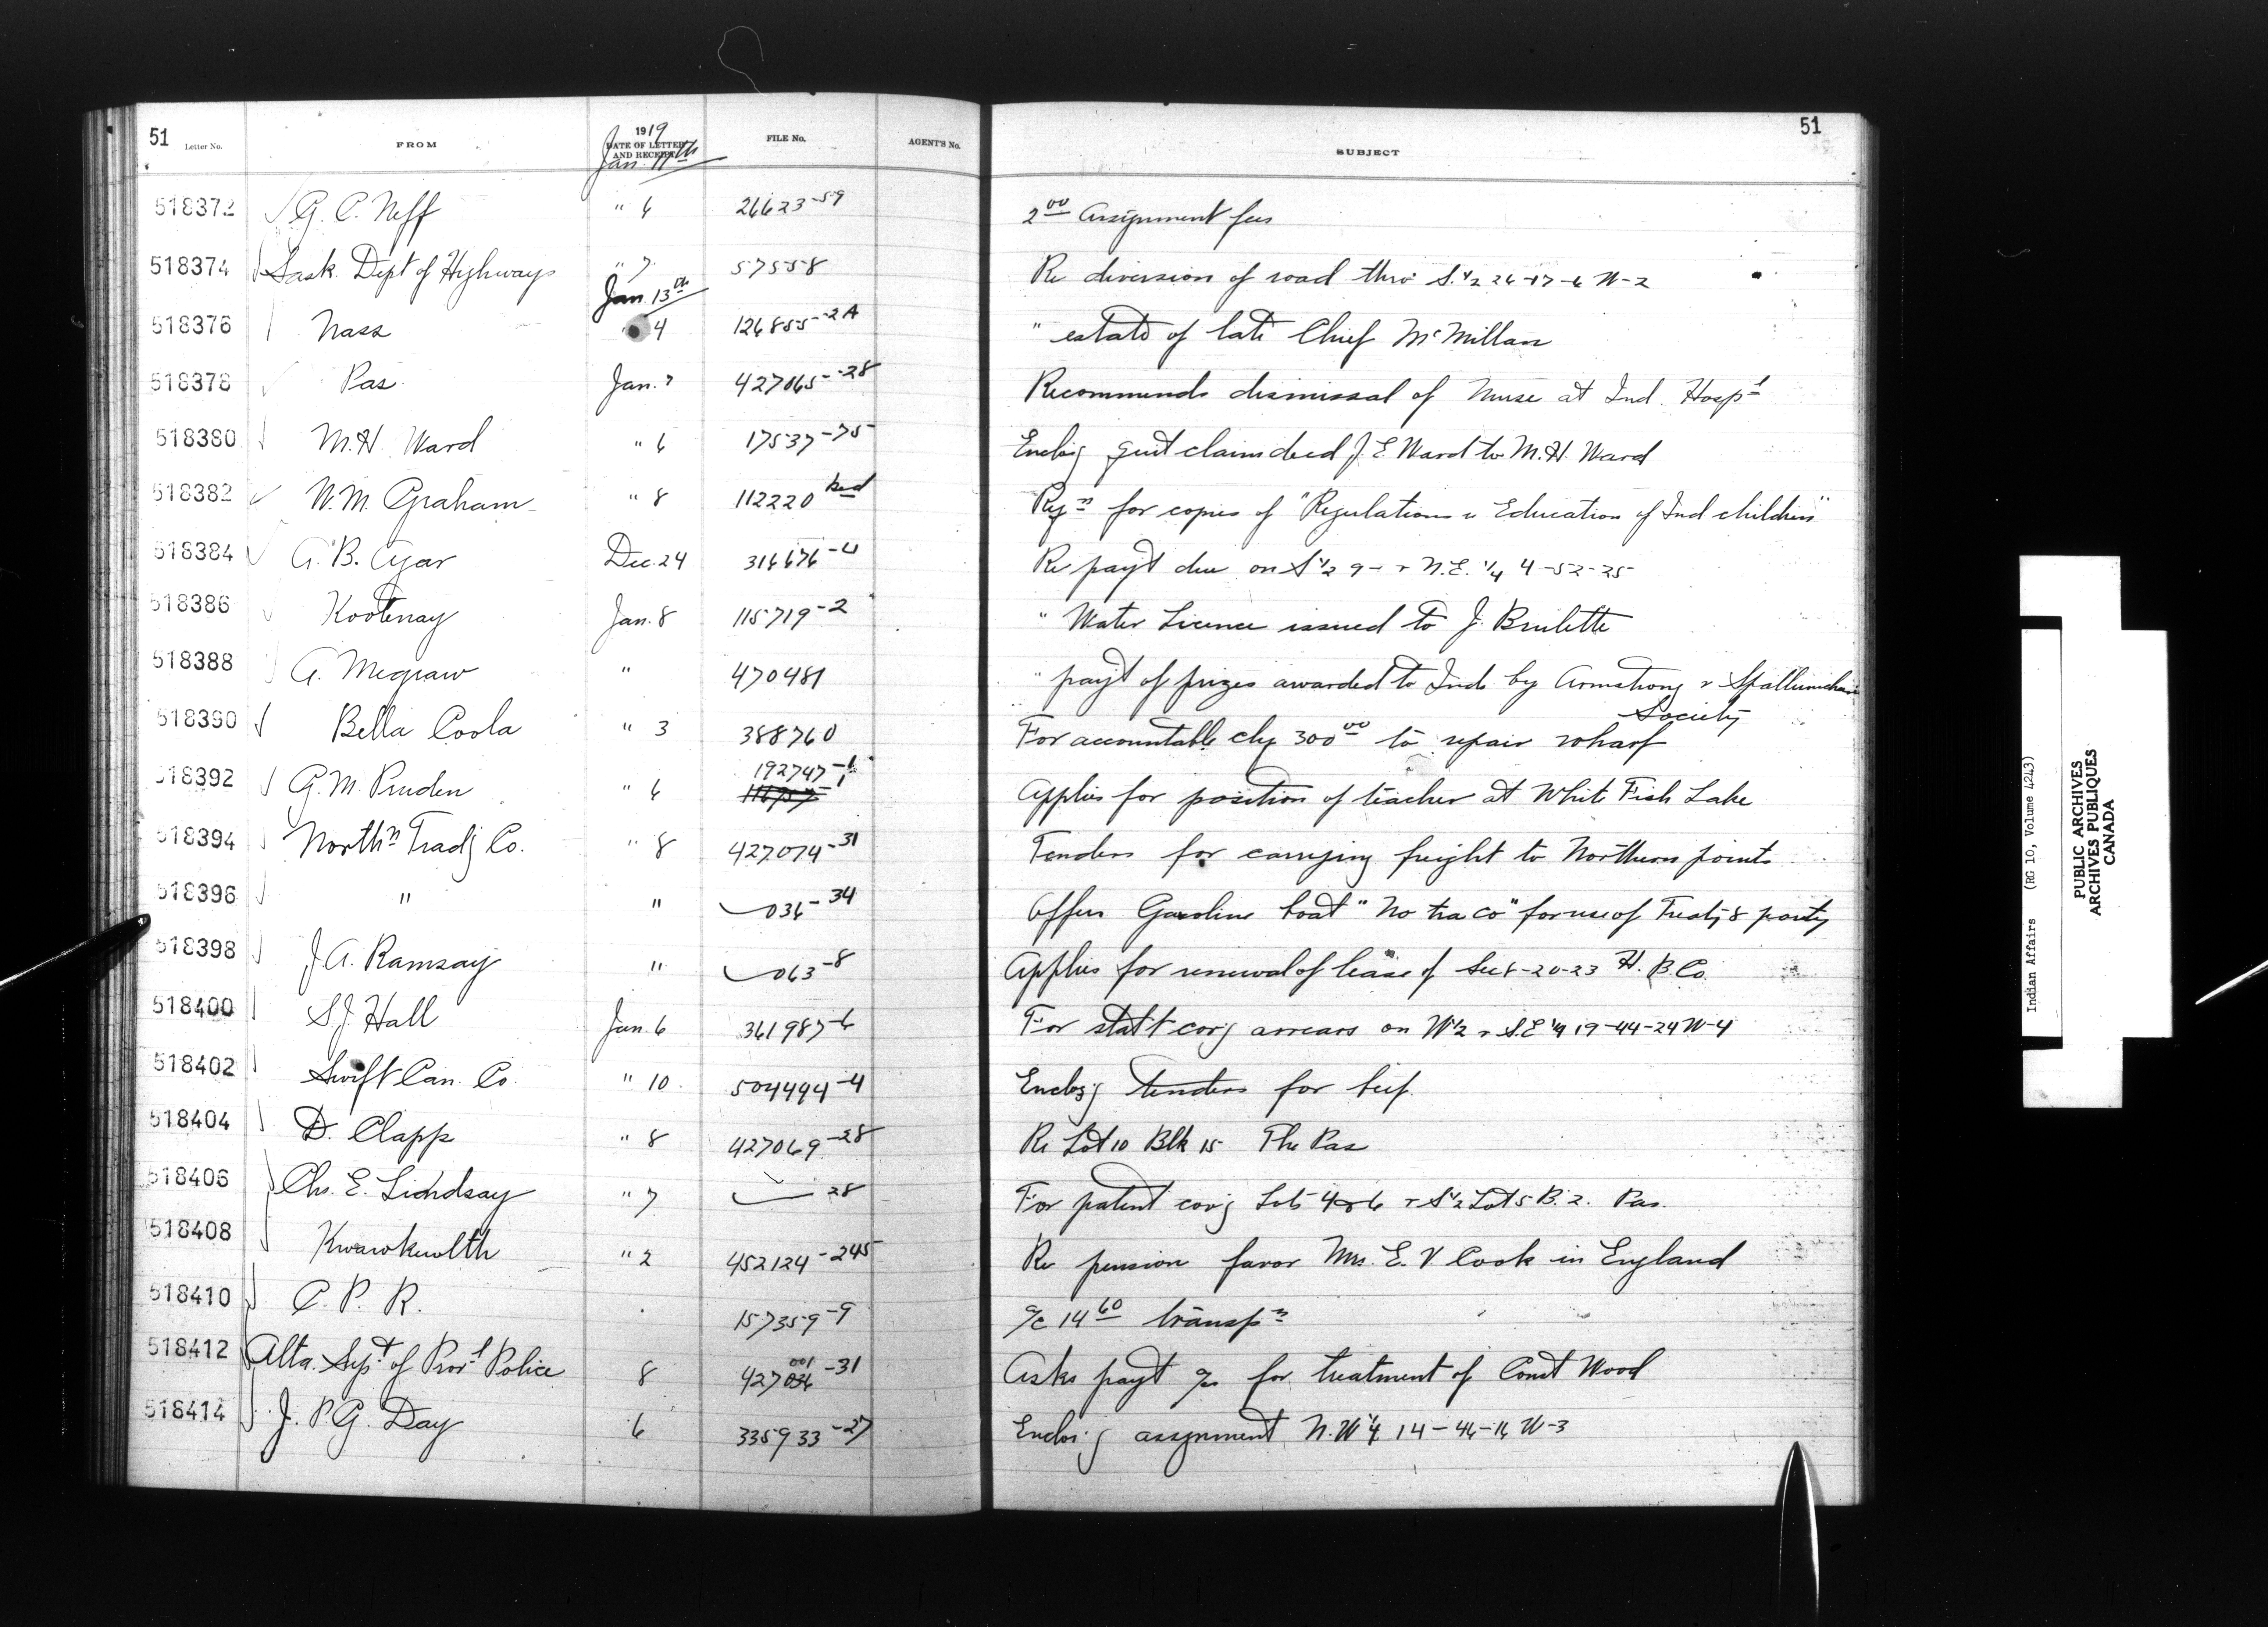 51 Letter No. FROM 1919 DATE OF LETTER AND RECEIPT FILE No. AGENT'S No. SUBJECT 51
Jan. 11th
518372 G. C. Neff " 6 26623-59 2 00 Assignment fees
518374 Sask. Dept of Highways " 7 57558 Re diversion of road thro' S. 1/2 26-17-6 W-2
Jan. 13th
518376 Nass " 4 126855-2A " estate of late Chief McMillan
518378 Pas Jan. 7 427065-28 Recommends dismissal of Nurse at Ind. Hospl
518380 M. H. Ward " 6 17537-75 Enclos'g quit claim deed J. E Ward to M. H. Ward
518382 W. M. Graham " 8 112220 Reqn for copies of "Regulations Education of Ind children"
518384 Dec. 24 Re payt due on S 1/2 9- + N.E. 1/4 4-52-25
518386 Kootenay Jan. 8 115719-2 " Water Licence issued to J. Brulette
518388 A. Megraw " 470481 " payt of prizes awarded to Inds by Armstrong + Spallumcheen
Society
518390 Bella Coola " 3 388760 For accountable chq 300 00 to repair wharf
518392 G. M. Pruden " 6 192747-1 Applies for position of teacher at White Fish Lake
518394 Northn Tradg Co. " 8 427074-31 Tenders for carrying freight to Northern points
518396 " " 036-34 Offers Gasoline boat "No tra co" for use of Treaty 8 party
518398 J. A. Ramsay " 063-8 Applies for renewal of lease of Sec 8-20-23 H. B. Co.
518400 S. J. Hall Jan. 6 361987-6 For stat't cov'g arrears on W 1/2 + S.E 1/4 19-44-24 W-4
518402 Swift Can. Co. " 10 504494-4 Enclos'g tenders for beef
518404 D. Clapp " 8 427069-28 Re Lot 10 Blk 15 The Pas
518406 Chs. E. Lindsay " 7 28 For patent cov'g Lots 4 & 6 + S 1/2 Lot 5 B. 2. Pas.
518408 Kwawkewlth " 2 452124-245 Re pension favor Mrs. E. V Cook in England
518410 C. P. R. 157359-9 a/c 14 60 transpn
518412 Alta. Supt of Provl Police 8 427001-31 Asks payt a/c for treatment of Const Wood
518414 J. P. G. Day 6 335933-27 Enclos'g assignment N. W 1/4 14-46-16 W-3
Indian Affairs (RG 10, Volume 4243)
PUBLIC ARCHIVES
ARCHIVES PUBLIQUES
CANADA